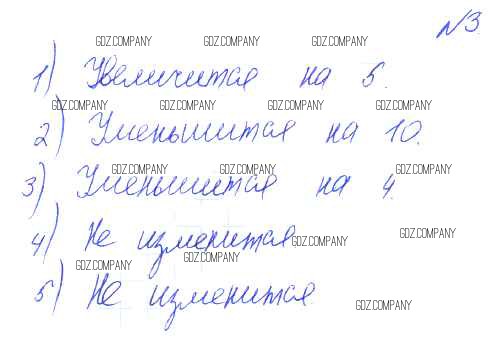 №3
GDZ.COMPANY GDZ.COMPANY GDZ.COMPANY
1) Увеличится на 5.
GDZ.COMPANY GDZ.COMPANY GDZ.COMPANY GDZ.COMPANY
2) Уменьшится на 10.
GDZ.COMPANY GDZ.COMPANY GDZ.COMPANY
3) Уменьшится на 4.
4) Не изменится
GDZ.COMPANY GDZ.COMPANY
GDZ.COMPANY GDZ.COMPANY
5) Не изменится.
GDZ.COMPANY